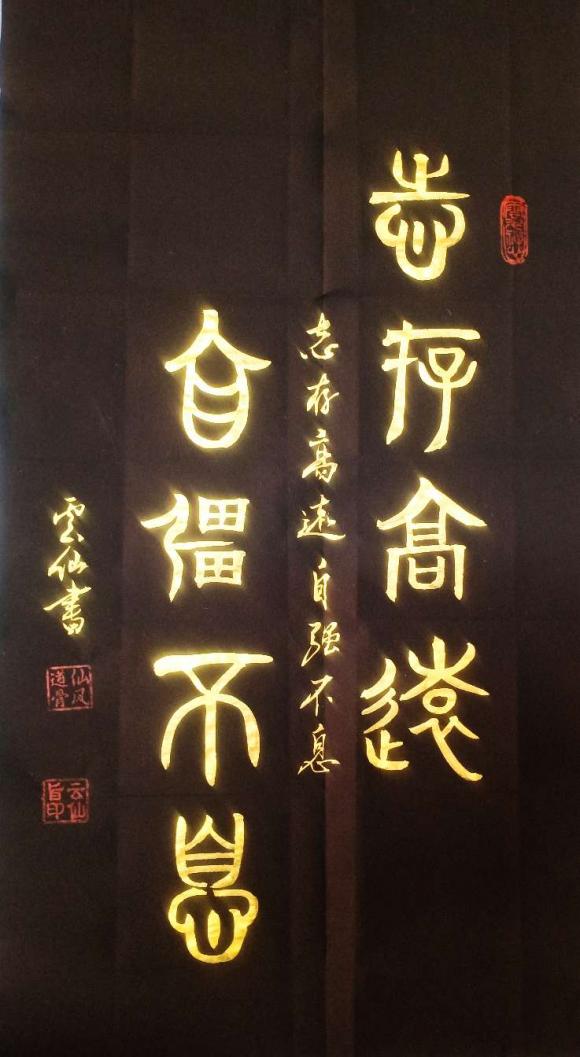 志存高遠
志存高遠自强不息
自彊不息
雲仙書
仙风道骨
云仙